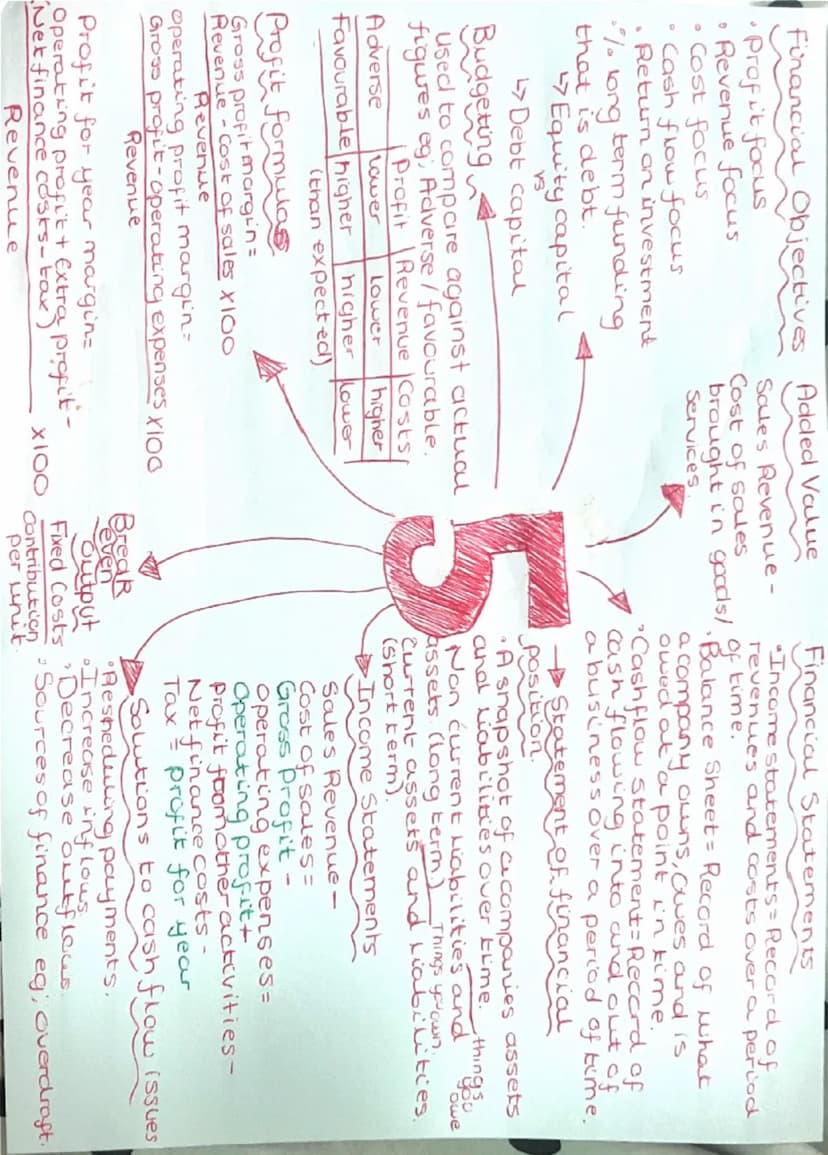 Financial Objectives
• Profit focus
• Revenue focus
• Cost focus
• Cash flow focus
• Return on investment
• % long term funding
that is debt.
↳ Equity capital
vs
↳ Debt capital
Added Value
Sales Revenue -
Cost of sales
brought in goods/
services
Financial Statements
• Income statements = Record of
revenues and costs over a period
of time.
• Balance Sheet = Record of what
a company owns, owes and is
owed at a point in time.
• Cashflow statement = Record of
cash flowing into and out of
a business over a period of time.
5
Budgeting
used to compare against actual
figures eg; Adverse/favourable.
Profit Revenue Costs
Adverse lower lower higher
Favourable higher higher lower
(than expected)
→ Statement of financial
position.
• A snapshot of a companies assets
and liabilities over time.
• Non current liabilities and
things you owe
assets (long term)
Things you own.
Current assets and liabilities.
(short term).
Profit formulas
Gross profit margin =
Revenue - Cost of sales x100
Revenue
operating profit margin =
Gross profit - operating expenses x100
Revenue
Profit for year margin =
operating profit + Extra profit -
(Net finance costs - tax) x100
Revenue
Income Statements
Sales Revenue -
Cost of sales =
Gross profit -
operating expenses =
Operating profit +
Profit from other activities -
Net finance costs -
Tax = profit for year
Break
even
output
Fixed Costs
Contribution
per unit.
Solutions to cash flow issues
• Resheduling payments.
• Increase inflows
• Decrease outflows
• Sources of finance eg; overdraft.